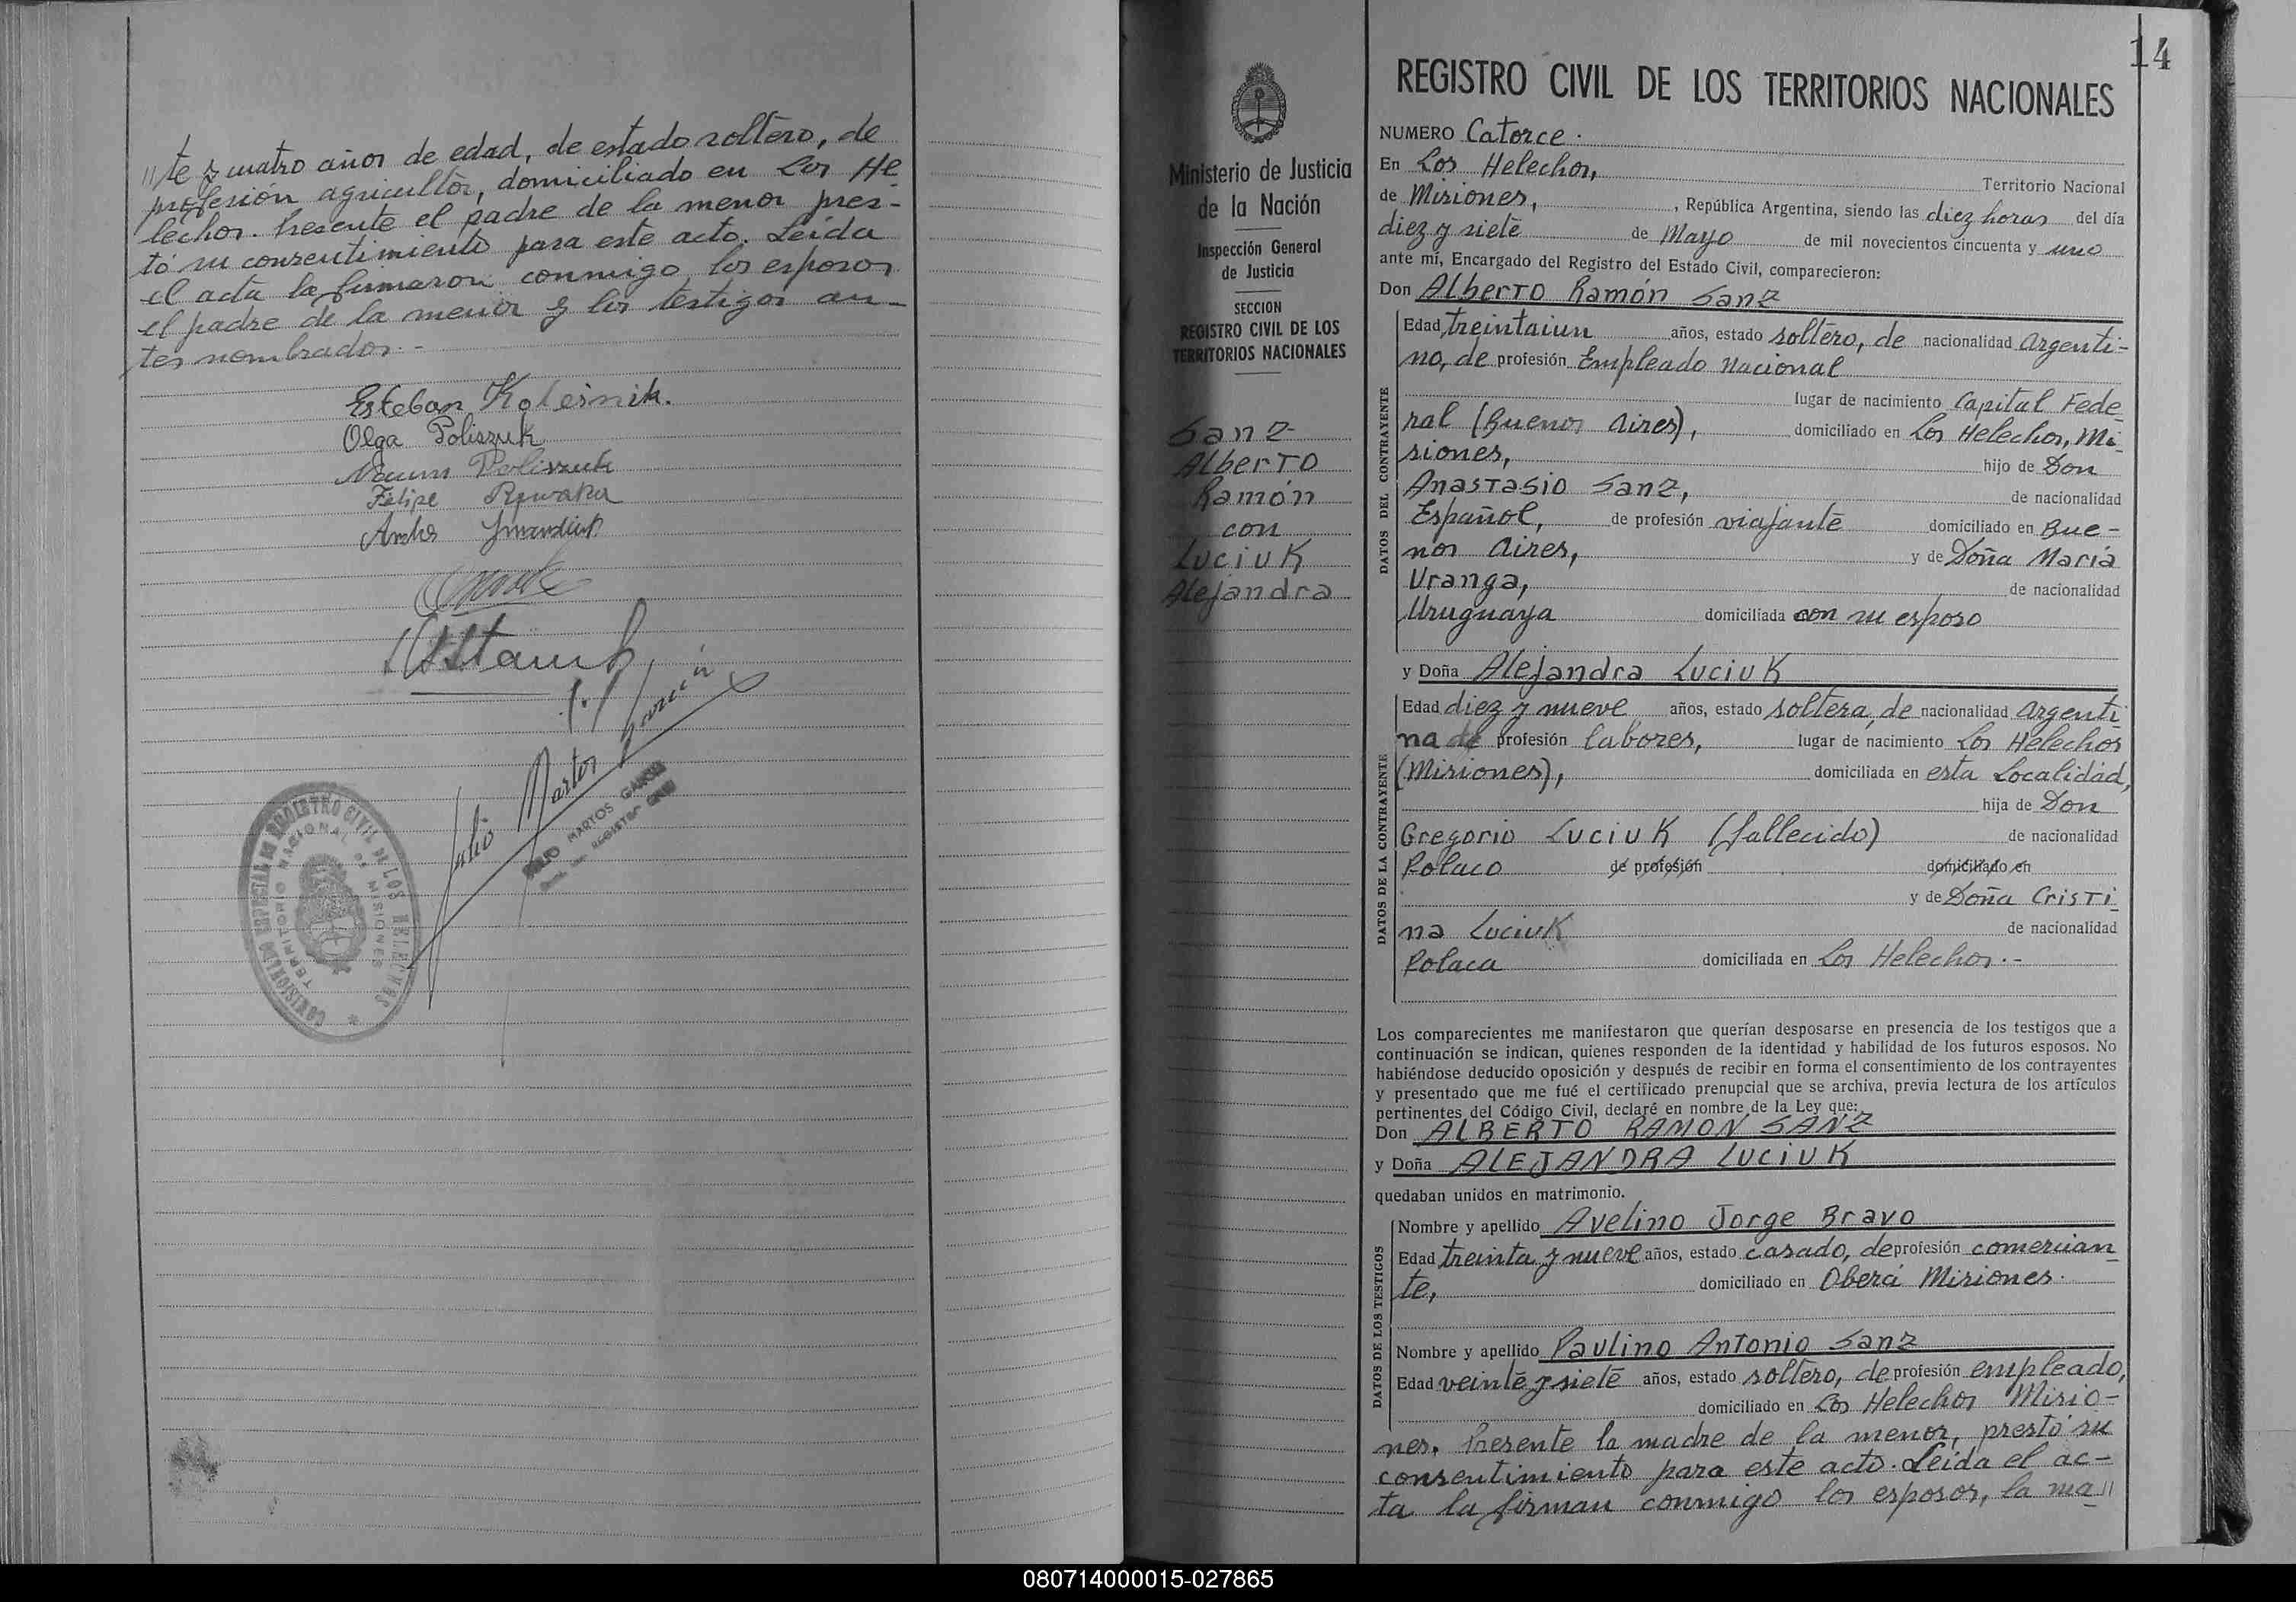 "te y cuatro años de edad, de estado soltero, de
profesión agricultor, domiciliado en Los He
lechos. Presente el padre de la menor pres-
tó su consentimiento para este acto. Leída
el acta la firmaron conmigo los esposos
el padre de la menor y los testigos an-
tes nombrados.-
Esteban Kolesnik.
Olga Poliszuk
Poliszuk
Felipe
JULIO MARTOS GARCIA
Julio Martos García
COMISIONADO ESPECIAL DE REGISTRO CIVIL DE LOS HELECHOS
TERRITORIO NACIONAL DE MISIONES
14
Ministerio de Justicia
de la Nación
Inspección General
de Justicia
SECCION
REGISTRO CIVIL DE LOS
TERRITORIOS NACIONALES
Sanz
Alberto
Ramón
con
Luciuk
Alejandra
REGISTRO CIVIL DE LOS TERRITORIOS NACIONALES
NUMERO Catorce.
En Los Helechos, Territorio Nacional
de Misiones, , República Argentina, siendo las diez horas del día
diez y siete de Mayo de mil novecientos cincuenta y uno
ante mí, Encargado del Registro del Estado Civil, comparecieron:
Don Alberto Ramón Sanz
DATOS DEL CONTRAYENTE
Edad treintaiun años, estado soltero, de nacionalidad argenti-
no, de profesión Empleado Nacional
lugar de nacimiento Capital Fede
ral (Buenos Aires), domiciliado en Los Helechos, Mi
siones, hijo de Don
Anastasio Sanz, de nacionalidad
Español, de profesión viajante domiciliado en Bue-
nos Aires, y de Doña María
Uranga, de nacionalidad
Uruguaya domiciliada con su esposo
y Doña Alejandra Luciuk
DATOS DE LA CONTRAYENTE
Edad diez y nueve años, estado soltera, de nacionalidad argenti
na de profesión labores, lugar de nacimiento Los Helechos
(Misiones), domiciliada en esta Localidad,
hija de Don
Gregorio Luciuk (fallecido) de nacionalidad
Polaco de profesión domiciliado en
y de Doña Cristi
na Luciuk de nacionalidad
Polaca domiciliada en Los Helechos.-
Los comparecientes me manifestaron que querían desposarse en presencia de los testigos que a
continuación se indican, quienes responden de la identidad y habilidad de los futuros esposos. No
habiéndose deducido oposición y después de recibir en forma el consentimiento de los contrayentes
y presentado que me fué el certificado prenupcial que se archiva, previa lectura de los artículos
pertinentes del Código Civil, declaré en nombre de la Ley que:
Don ALBERTO RAMON SANZ
y Doña ALEJANDRA LUCIUK
quedaban unidos en matrimonio.
DATOS DE LOS TESTIGOS
Nombre y apellido Avelino Jorge Bravo
Edad treinta y nueve años, estado casado, de profesión comercian
te, domiciliado en Oberá Misiones.
Nombre y apellido Paulino Antonio Sanz
Edad veinte y siete años, estado soltero, de profesión empleado,
domiciliado en Los Helechos Misio-
nes. Presente la madre de la menor, prestó su
consentimiento para este acto. Leída el ac-
ta la firman conmigo los esposos, la ma"
080714000015-027865